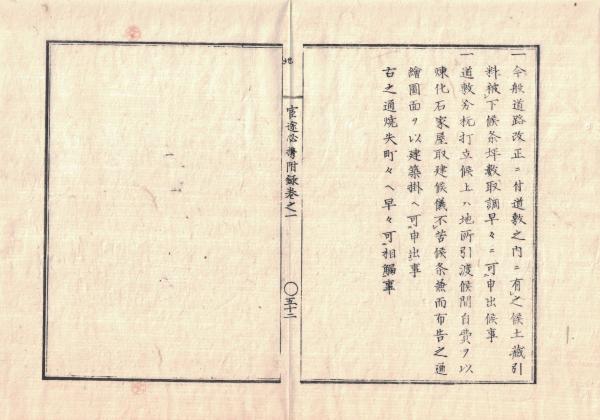 一今般道路改正ニ付道敷之内ニ有之候土藏引
料被下候条坪數取調早々ニ可申出候事
一道敷分杭打立候上ハ地所引渡候間自費ヲ以
煉化石家屋取建候儀不苦候条兼而布告之通
繪圖面ヲ以建築掛ヘ可申出事
右之通燒失町々ヘ早々可相觸事
官途必携附錄卷之一
〇五十二